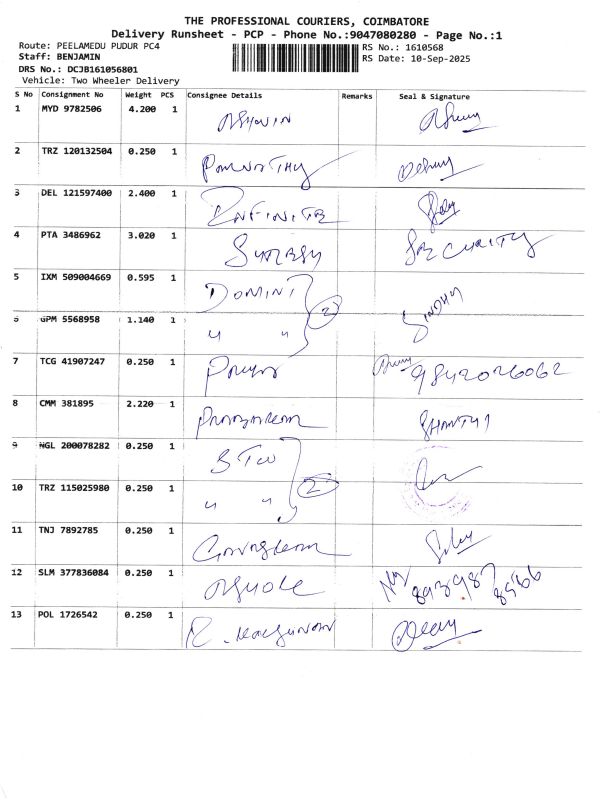 THE PROFESSIONAL COURIERS, COIMBATORE
Delivery Runsheet - PCP - Phone No.:9047080280 - Page No.:1
Route: PEELAMEDU PUDUR PC4
RS No.: 1610568
Staff: BENJAMIN
RS Date: 10-Sep-2025
DRS No.: DCJB161056801
Vehicle: Two Wheeler Delivery
S No Consignment No Weight PCS Consignee Details Remarks Seal & Signature
1 MYD 9782506 4.200 1 ASHWIN
2 TRZ 120132504 0.250 1
3 DEL 121597400 2.400 1 INFINITE
4 PTA 3486962 3.020 1 SURESH SECURITY
5 IXM 509004669 0.595 1 DOMINI SINDHU
2
6 GPM 5568958 1.140 1 " "
7 TCG 41907247 0.250 1 9842026062
8 CMM 381895 2.220 1 SHANTHI
9 NGL 200078282 0.250 1
2
10 TRZ 115025980 0.250 1 " "
11 TNJ 7892785 0.250 1
12 SLM 377836084 0.250 1
13 POL 1726542 0.250 1